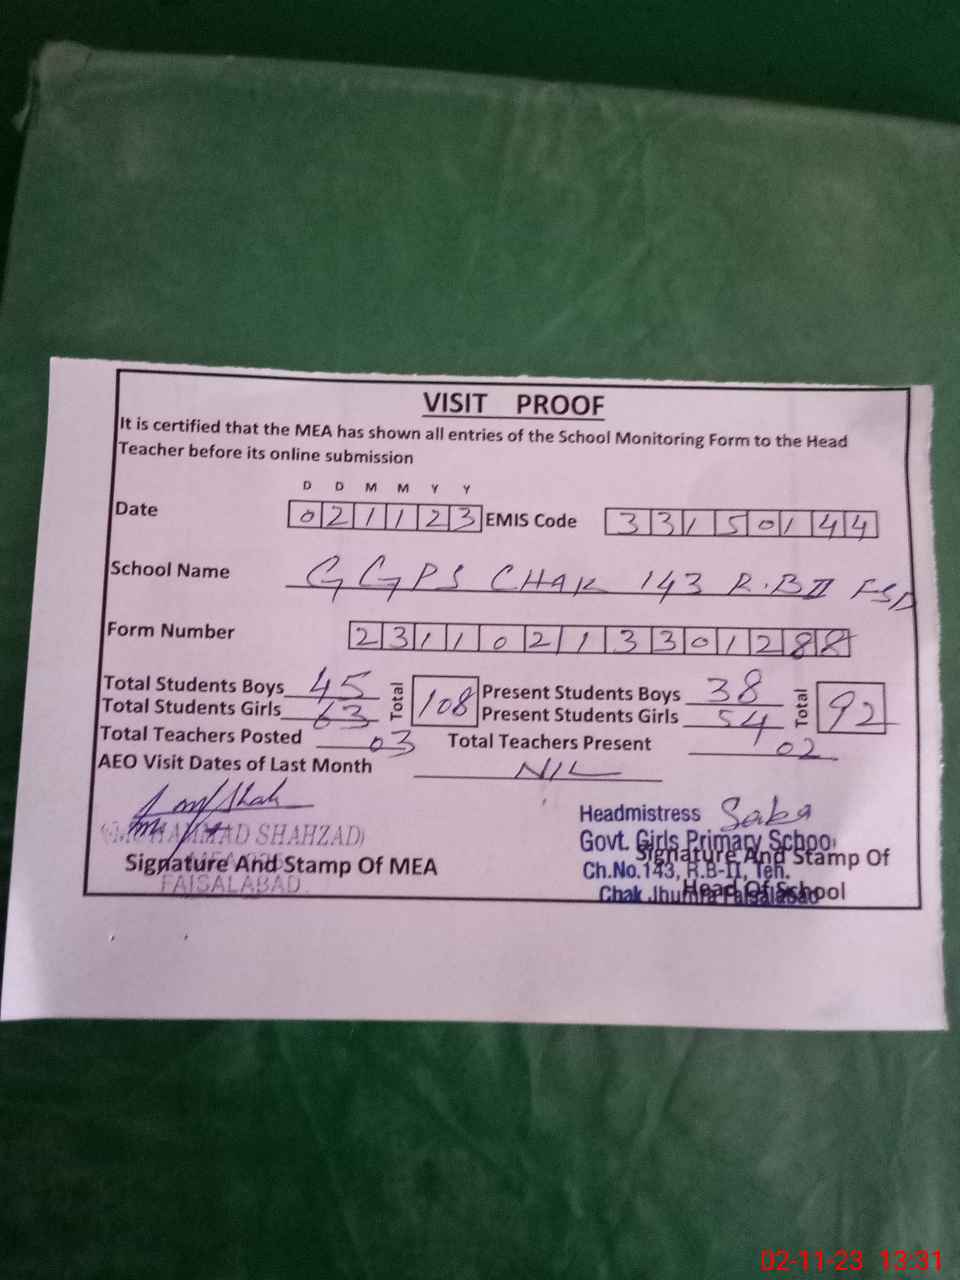 VISIT PROOF
It is certified that the MEA has shown all entries of the School Monitoring Form to the Head
Teacher before its online submission
D D M M Y Y
Date 0 2 1 1 2 3 EMIS Code 3 3 1 5 0 1 4 4
School Name GGPS CHAK 143 R.B II FSD
Form Number 2 3 1 1 0 2 1 3 3 0 1 2 8 8
Total Students Boys 45 Total 108 Present Students Boys 38 Total 92
Total Students Girls 63 Present Students Girls 54
Total Teachers Posted 03 Total Teachers Present 02
AEO Visit Dates of Last Month NIL
Headmistress Saba
(MUHAMMAD SHAHZAD) Govt. Girls Primary School
Signature And Stamp Of MEA Signature And Stamp Of
Ch.No.143, R.B-II, Teh.
FAISALABAD Head Of School
Chak Jhumra Faisalabad
02-11-23 13:31